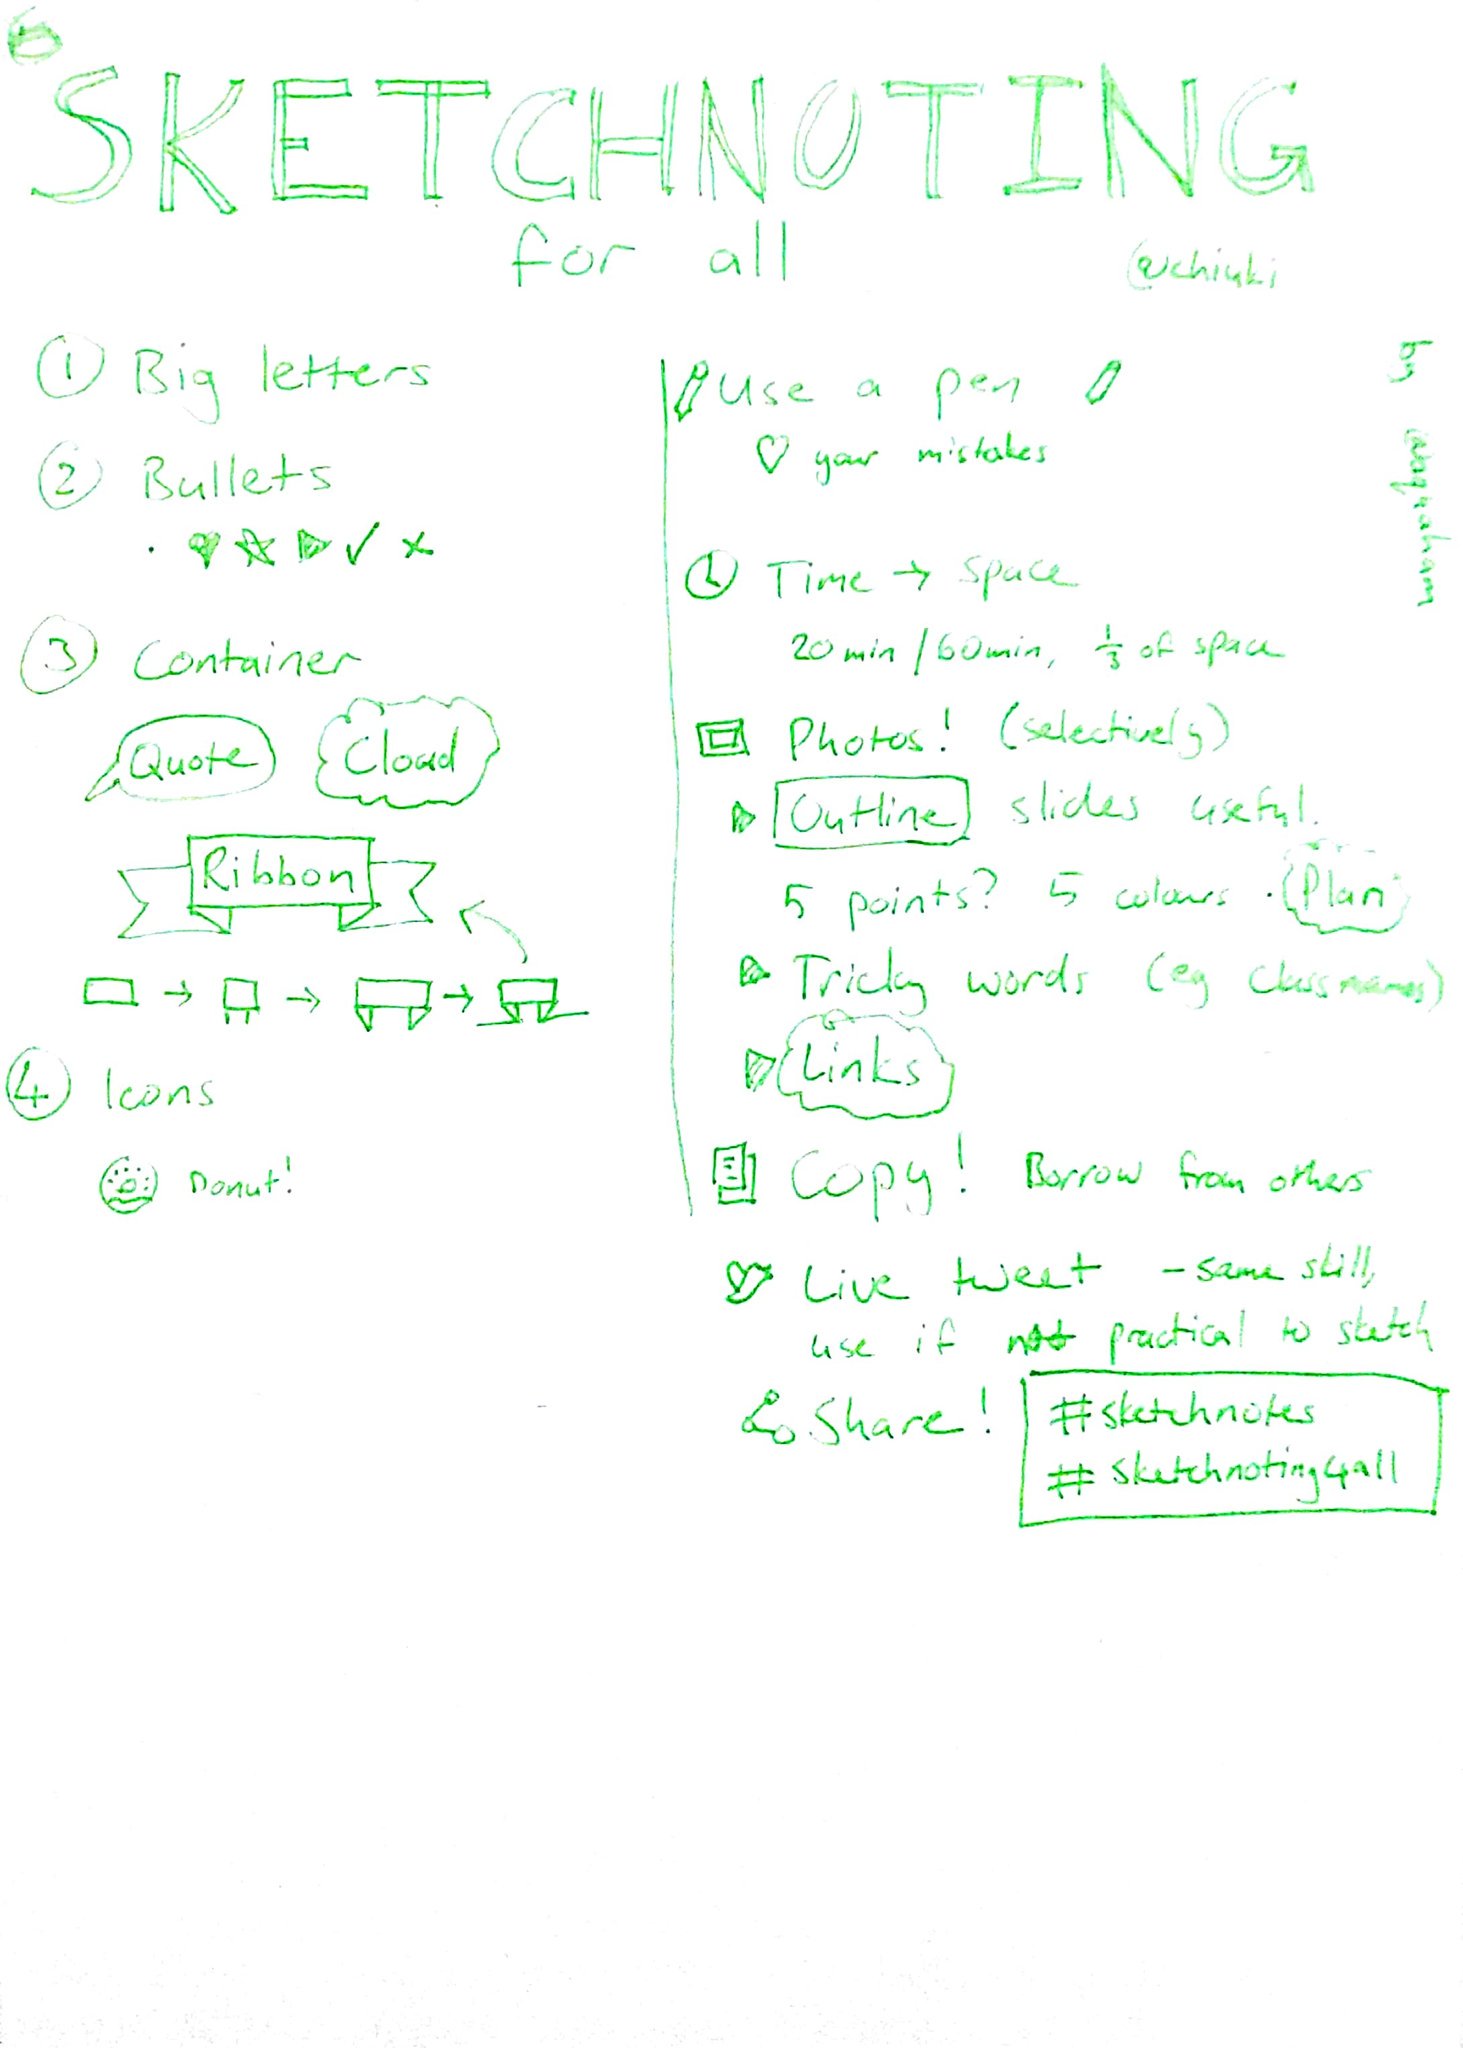 SKETCHNOTING
for all
@chiuki
① Big letters
② Bullets
③ Container
Quote
Cloud
Ribbon
④ Icons
Donut!
Use a pen
♡ your mistakes
Time → space
20 min / 60 min, 1/3 of space
Photos! (selectively)
Outline slides useful.
5 points? 5 colours · Plan
Tricky words (eg Class names)
Links
Copy! Borrow from others
Live tweet - same skill,
use if not practical to sketch
Share!
#sketchnotes
#sketchnoting4all
by